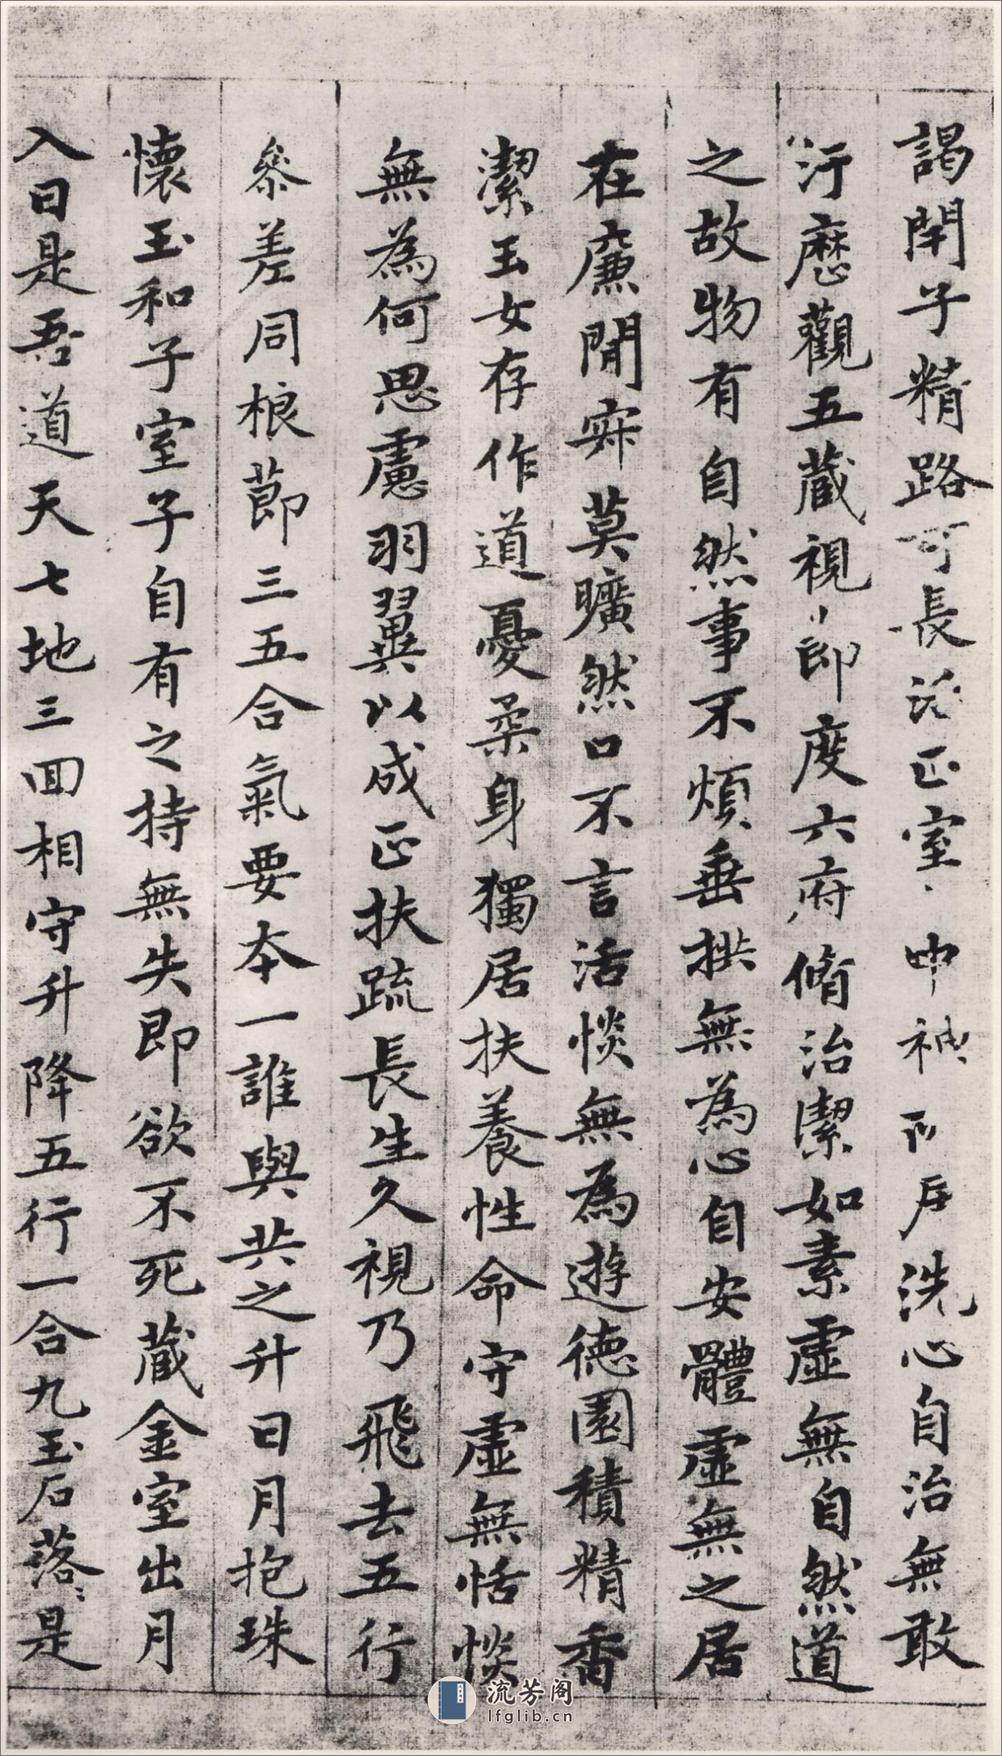 謁閉子精路可長活正室中神所居洗心自治無敢
汙歷觀五藏視節度六府脩治潔如素虛無自然道
之故物有自然事不煩垂拱無為心自安體虛無之居
在廉閒寂莫曠然口不言活惔無為遊德園積精香
潔玉女存作道憂柔身獨居扶養性命守虛無恬惔
無為何思慮羽翼以成正扶疏長生久視乃飛去五行
參差同根莭三五合氣要本一誰與共之升日月抱珠
懷玉和子室子自有之持無失即欲不死藏金室出月
入日是吾道天七地三回相守升降五行一合九玉石落〻是
流芳阁
lfglib.cn